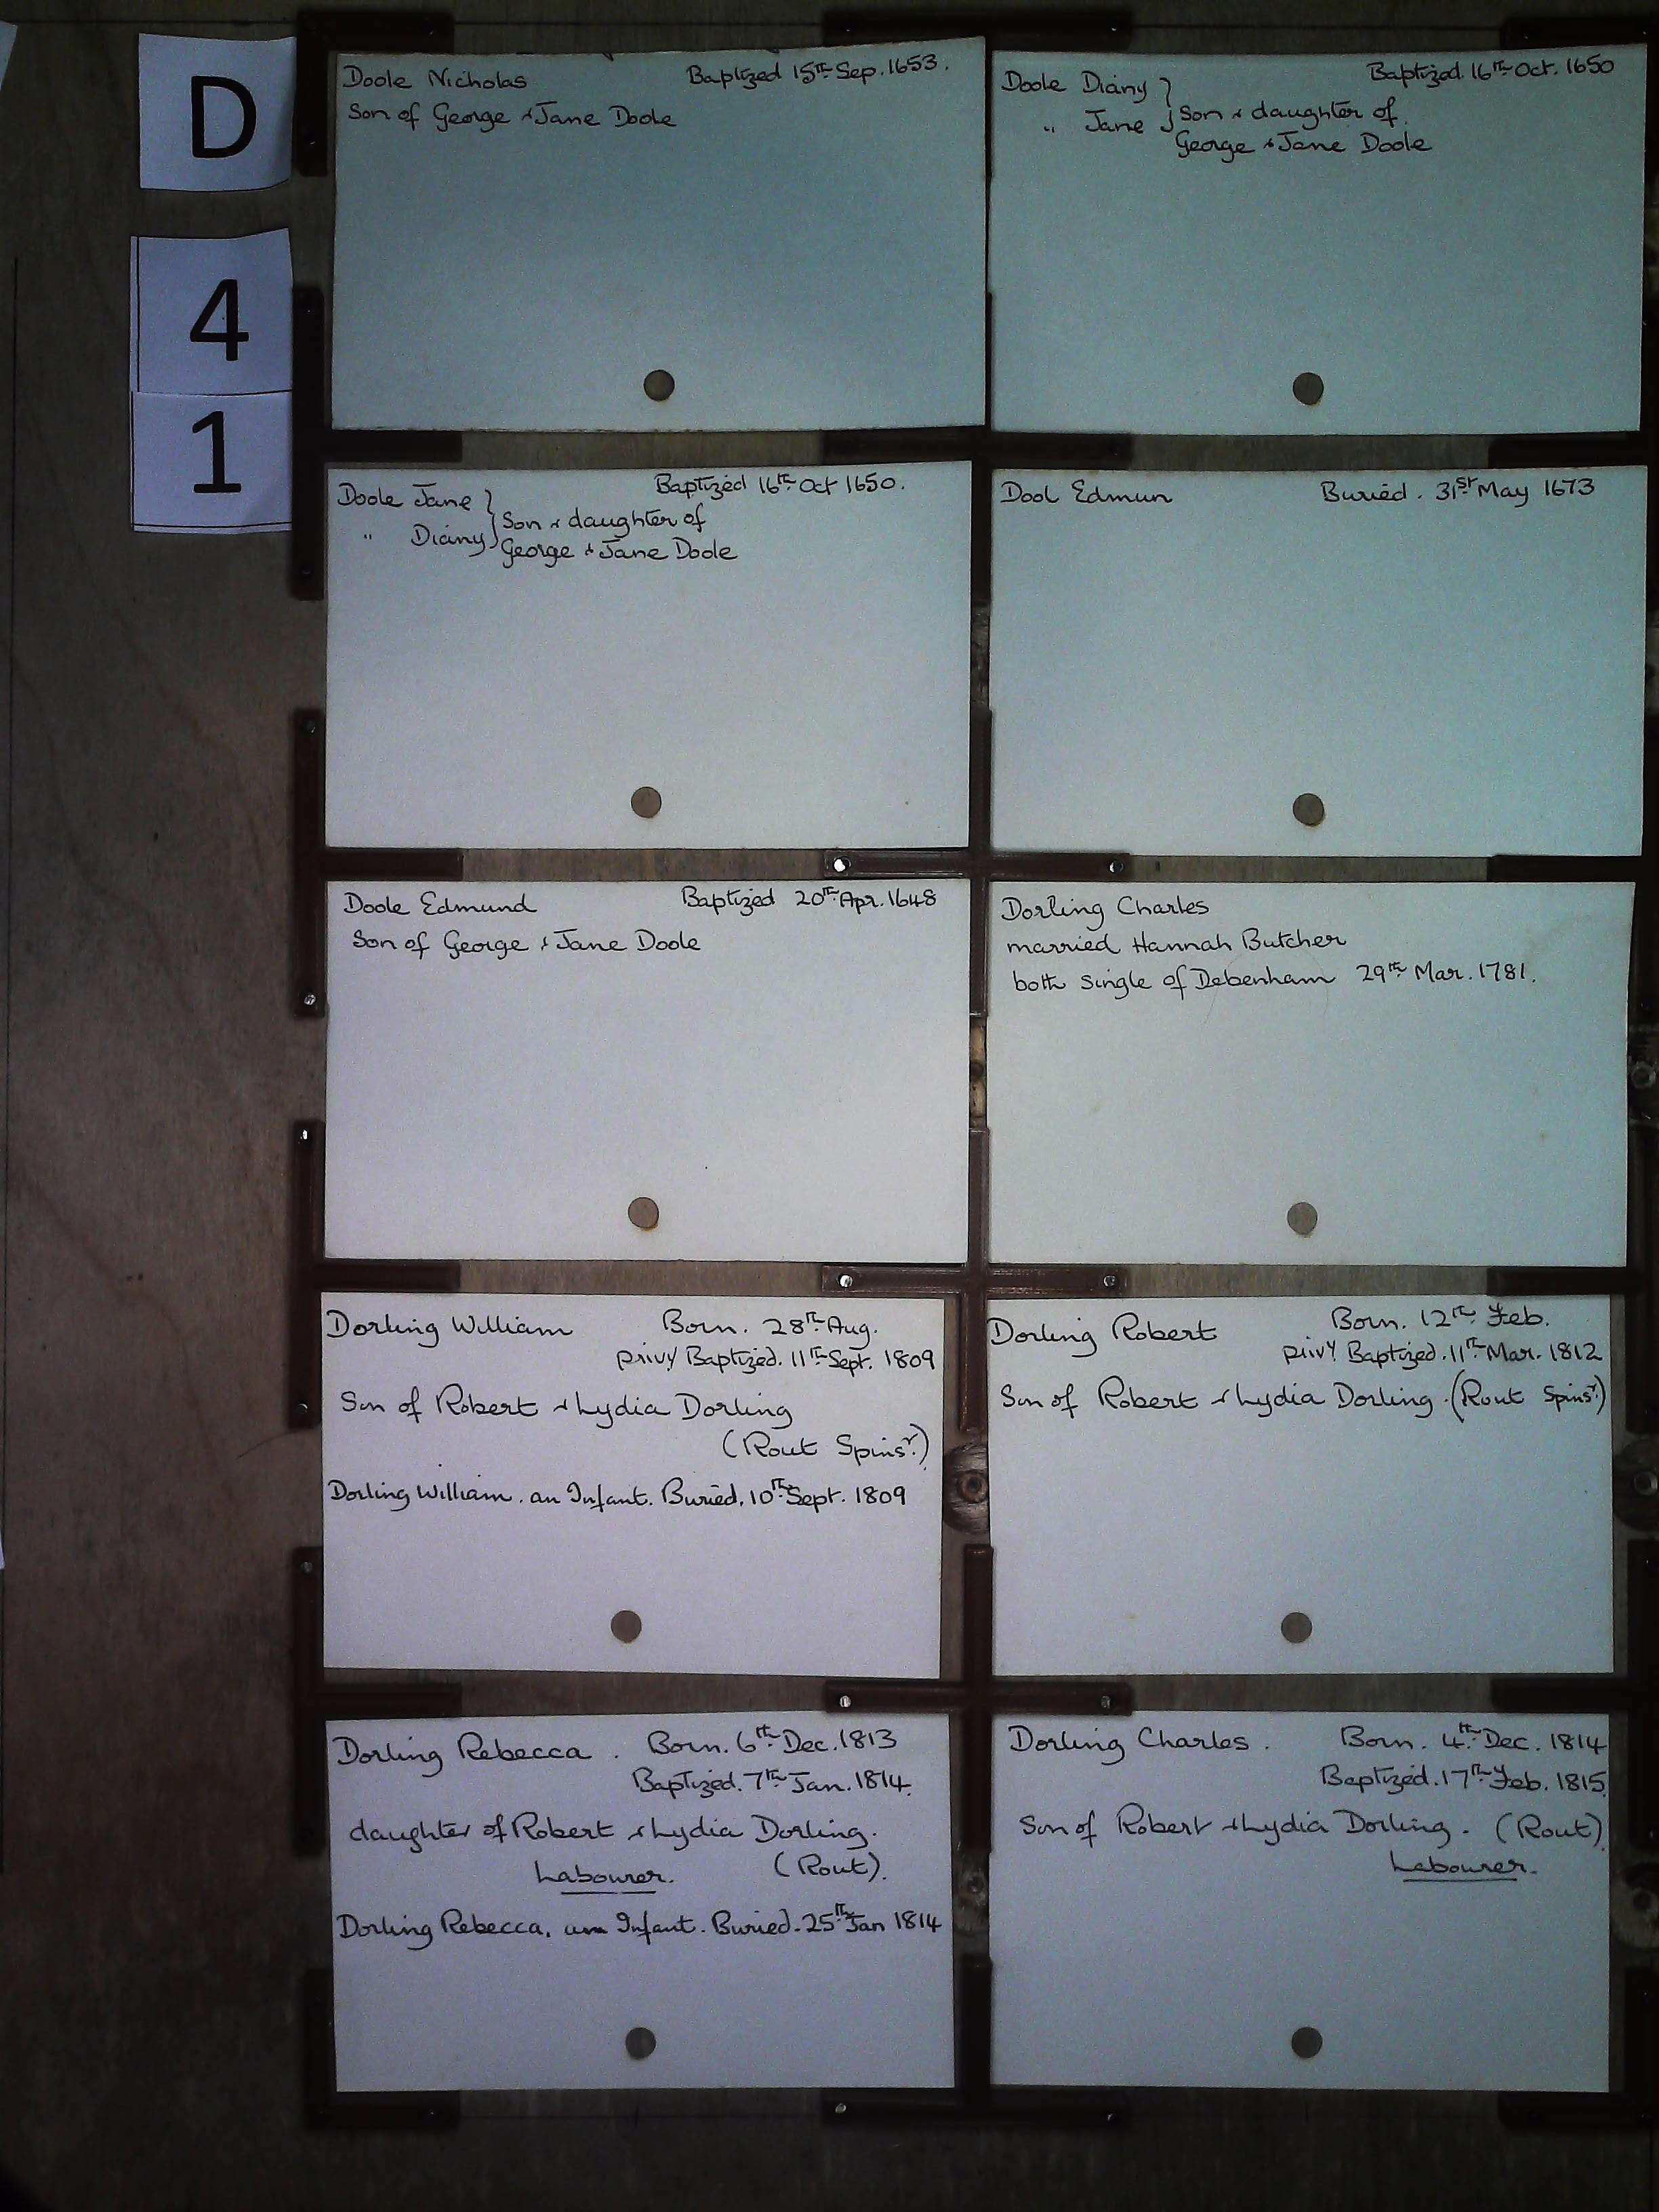 D
4
1
Doole Nicholas Baptized 15th Sep. 1653.
Son of George & Jane Doole
Doole Diany Baptized 16th Oct. 1650
" Jane } Son & daughter of
George & Jane Doole
Doole Jane Baptized 16th Oct 1650.
" Diany } Son & daughter of
George & Jane Doole
Dool Edmun Buried. 31st May 1673
Doole Edmund Baptized 20th Apr. 1648
Son of George & Jane Doole
Dorling Charles
married Hannah Butcher
both single of Debenham 29th Mar. 1781.
Dorling William Born. 28th Aug.
privy Baptized. 11th Sept. 1809
Son of Robert & Lydia Dorling
(Rout Spinsr.)
Dorling William. an Infant. Buried. 10th Sept. 1809
Dorling Robert Born. 12th Feb.
privy Baptized. 11th Mar. 1812
Son of Robert & Lydia Dorling. (Rout Spinsr.)
Dorling Rebecca. Born. 6th Dec. 1813
Baptized. 7th Jan. 1814.
daughter of Robert & Lydia Dorling.
Labourer. (Rout).
Dorling Rebecca. an Infant. Buried. 25th Jan 1814
Dorling Charles. Born. 4th Dec. 1814
Baptized. 17th Feb. 1815.
Son of Robert & Lydia Dorling. (Rout)
Labourer.